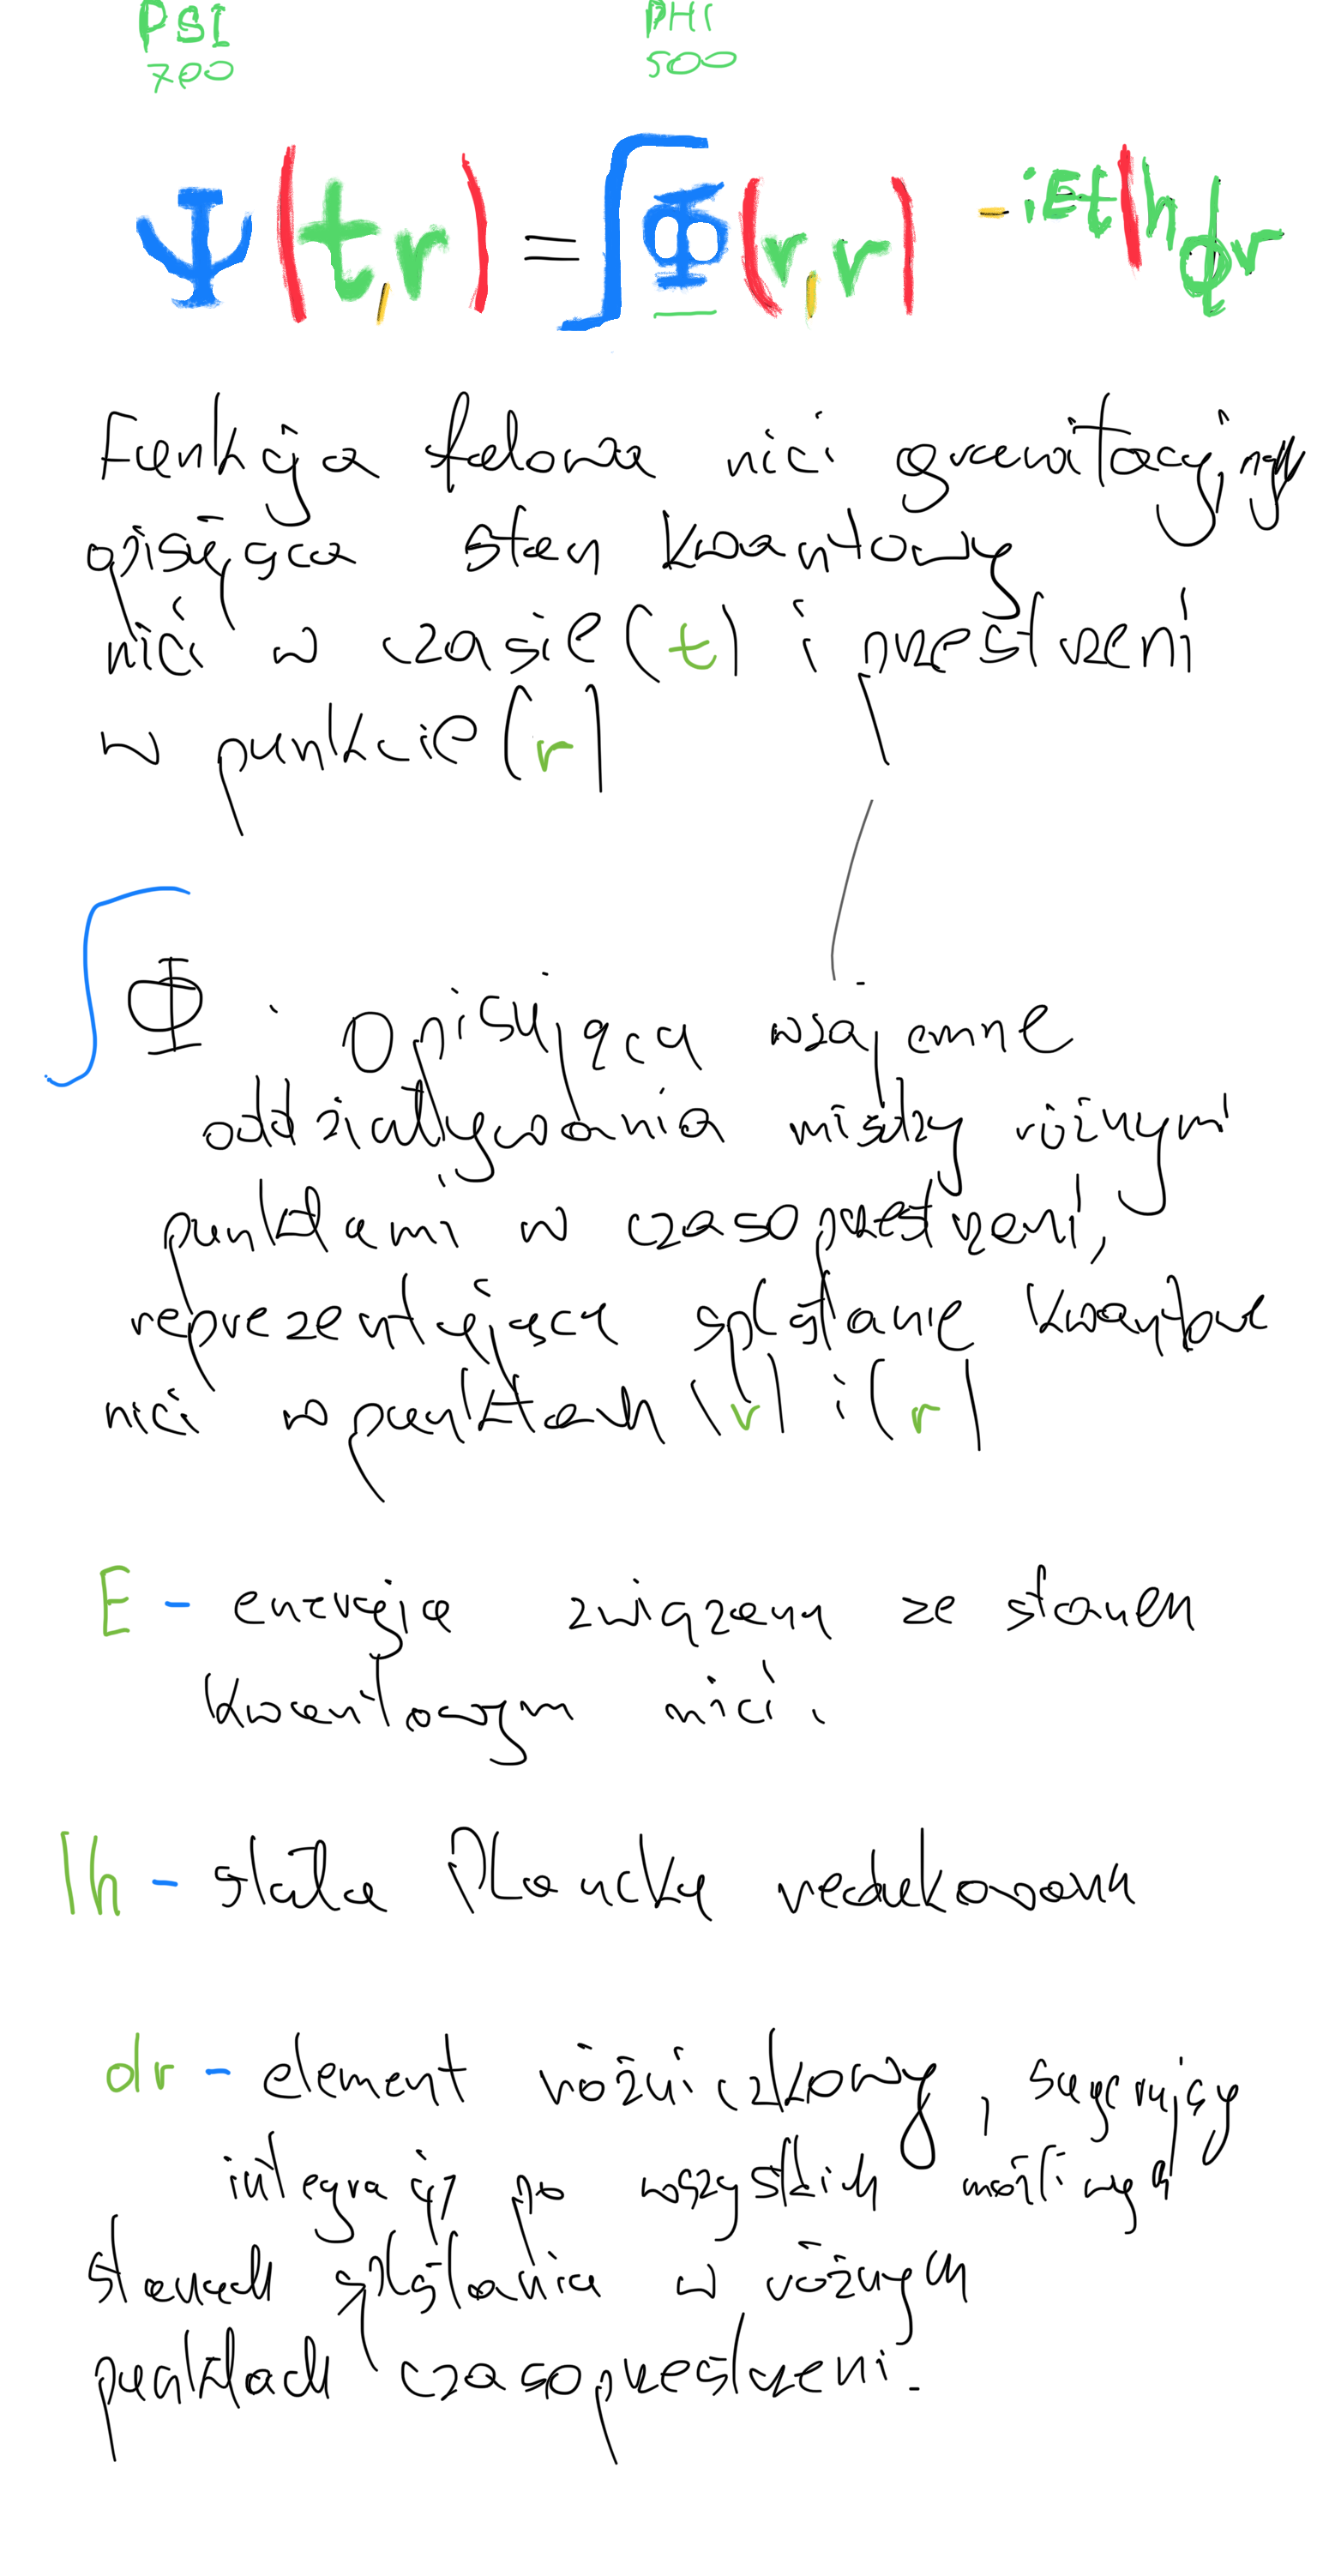 PSI PHI
700 500
Ψ(t,r)=∫Φ(r,r) -iEt|h dr
Funkcja falowa nici grawitacyjnej
opisująca stan kwantowy
nici w czasie (t) i przestrzeni
w punkcie (r)
∫Φ . Opisująca wzajemne
oddziaływania między różnymi
punktami w czasoprzestrzeni,
reprezentująca splątanie kwantowe
nici w punktach (r) i (r)
E - energia związana ze stanem
kwantowym nici.
|h - stała Plancka redukowana
dr - element różniczkowy, sugerujący
integrację po wszystkich możliwych
stanach splątania w różnych
punktach czasoprzestrzeni.